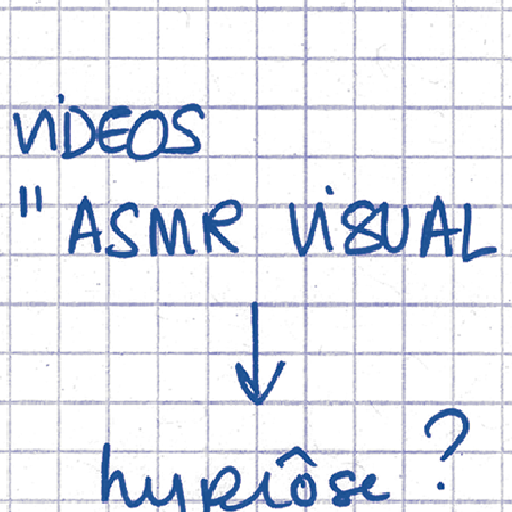 VIDEOS
" ASMR VISUAL
↓
hypnôse ?